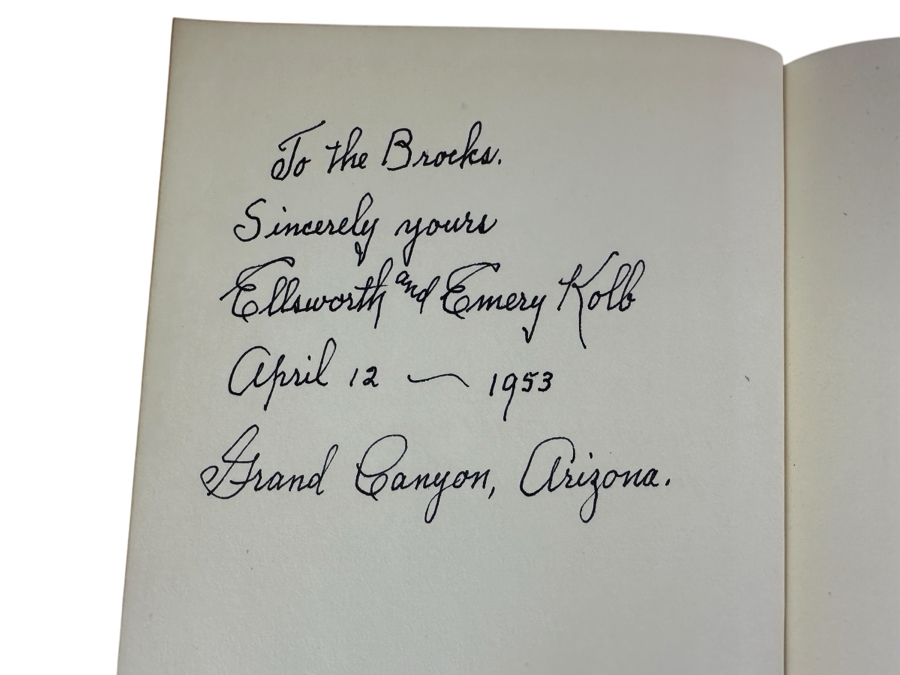 To the Brocks.
Sincerely yours
Ellsworth and Emery Kolb
April 12 — 1953
Grand Canyon, Arizona.